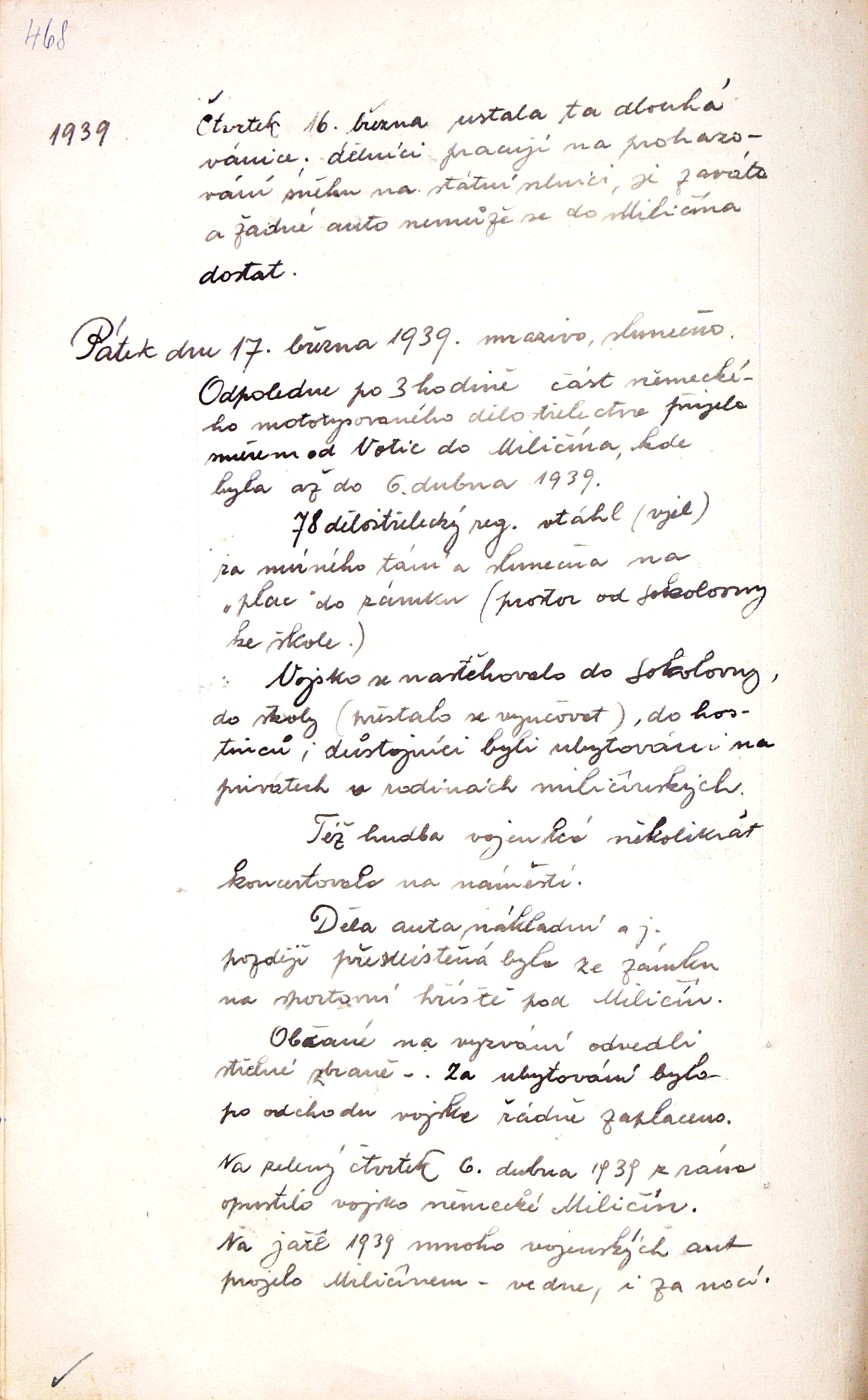 468
1939
Čtvrtek 16. března ustala ta dlouhá
vánice. dělníci pracují na prohazo-
vání sněhu na státní silnici, je zaváto
a žádné auto nemůže se do Miličína
dostat.
Pátek dne 17. března 1939. mrazivo, slunečno.
Odpoledne po 3 hodině část německé-
ho mototysovaného dělostřelectva přijela
směrem od Votic do Miličína, kde
byla až do 6. dubna 1939.
78 dělostřelecký reg. vtáhl (vjel)
za mírného tání a slunečna na
„plac" do zámku (prostor od sokolovny
ke škole.)
Vojsko se nastěhovalo do sokolovny,
do školy (přestalo se vyučovat), do hos-
tinců; důstojníci byli ubytováni na
privátech v rodinách miličínských.
Též hudba vojenská několikrát
koncertovala na náměstí.
Děla auta nákladní a j.
později přemístěná byla ze zámku
na sportovní hřiště pod Miličín.
Občané na vyzvání odvedli
střelné zbraně -. Za ubytování bylo
po odchodu vojska řádně zaplaceno.
Na zelený čtvrtek 6. dubna 1939 z rána
opustilo vojsko německé Miličín.
Na jaře 1939 mnoho vojenských aut
projelo Miličínem - ve dne, i za noci.